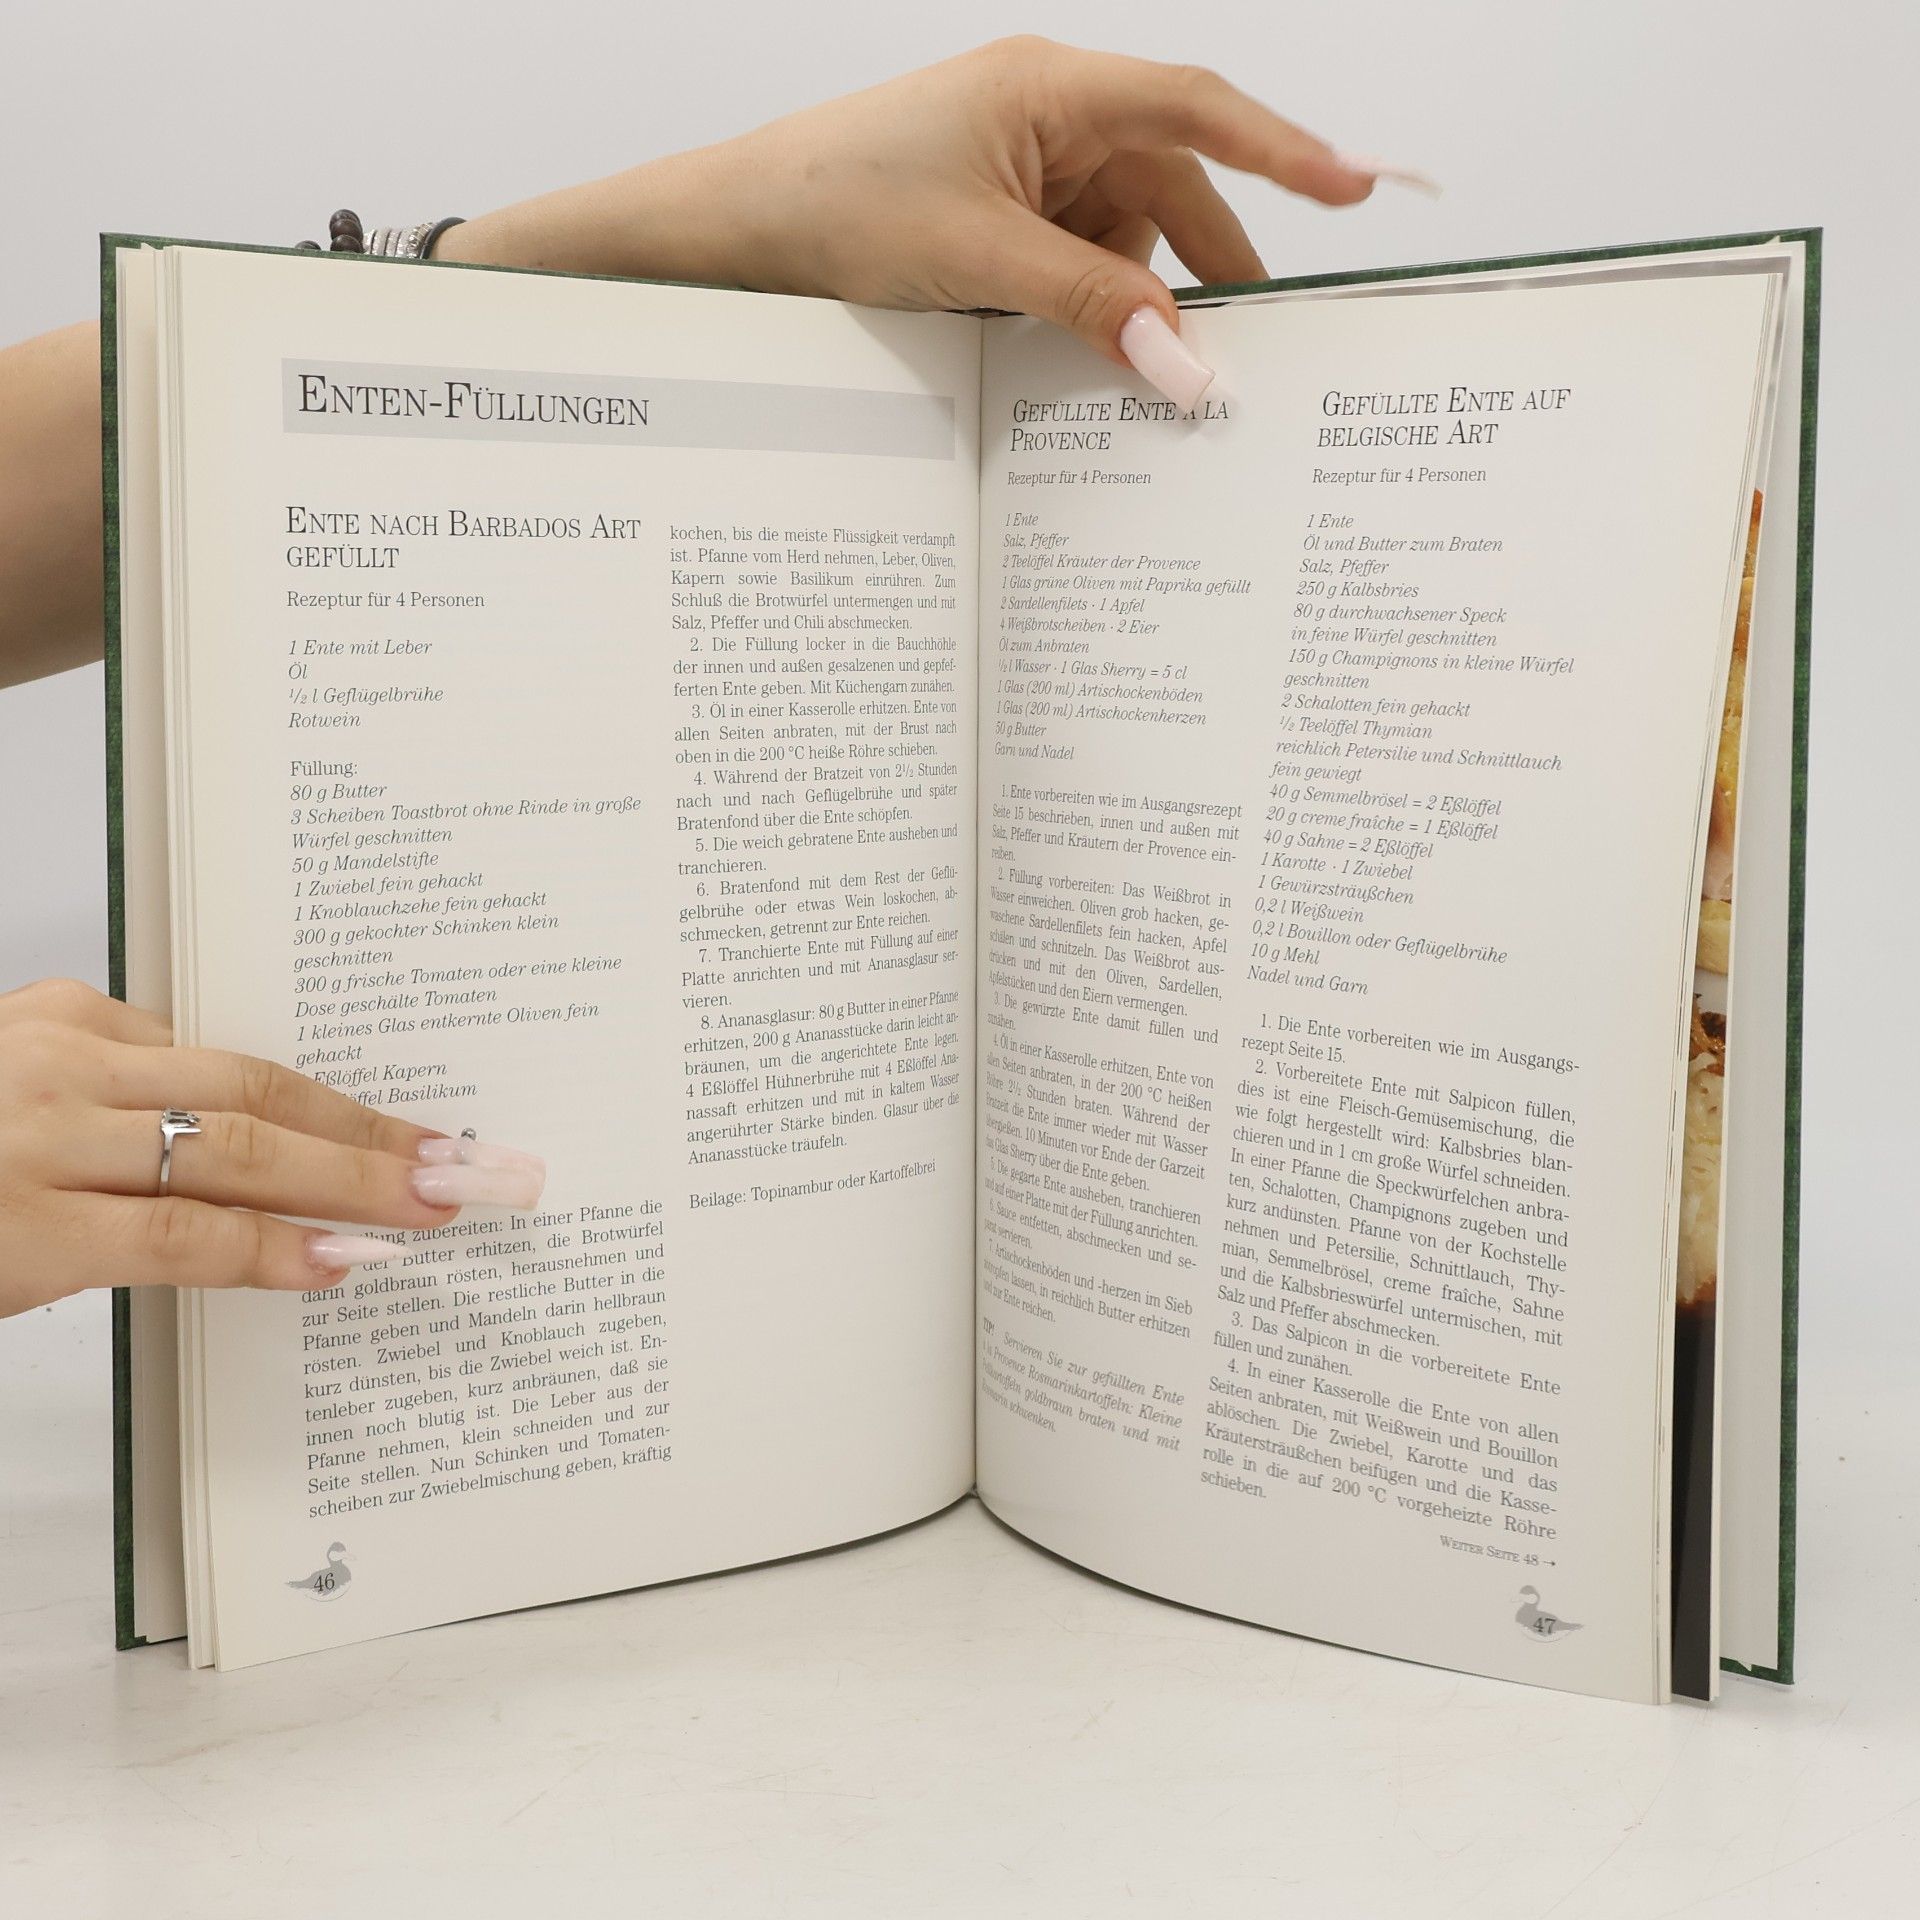 ENTEN-FÜLLUNGEN
ENTE NACH BARBADOS ART
GEFÜLLT
Rezeptur für 4 Personen
1 Ente mit Leber
Öl
1/2 l Geflügelbrühe
Rotwein
Füllung:
80 g Butter
3 Scheiben Toastbrot ohne Rinde in große
Würfel geschnitten
50 g Mandelstifte
1 Zwiebel fein gehackt
1 Knoblauchzehe fein gehackt
300 g gekochter Schinken klein
geschnitten
300 g frische Tomaten oder eine kleine
Dose geschälte Tomaten
1 kleines Glas entkernte Oliven fein
gehackt
Eßlöffel Kapern
Basilikum
zubereiten: In einer Pfanne die
der Butter erhitzen, die Brotwürfel
darin goldbraun rösten, herausnehmen und
zur Seite stellen. Die restliche Butter in die
Pfanne geben und Mandeln darin hellbraun
rösten. Zwiebel und Knoblauch zugeben,
kurz dünsten, bis die Zwiebel weich ist. En-
tenleber zugeben, kurz anbräunen, daß sie
innen noch blutig ist. Die Leber aus der
Pfanne nehmen, klein schneiden und zur
Seite stellen. Nun Schinken und Tomaten-
scheiben zur Zwiebelmischung geben, kräftig
kochen, bis die meiste Flüssigkeit verdampft
ist. Pfanne vom Herd nehmen, Leber, Oliven,
Kapern sowie Basilikum einrühren. Zum
Schluß die Brotwürfel untermengen und mit
Salz, Pfeffer und Chili abschmecken.
2. Die Füllung locker in die Bauchhöhle
der innen und außen gesalzenen und gepfef-
ferten Ente geben. Mit Küchengarn zunähen.
3. Öl in einer Kasserolle erhitzen. Ente von
allen Seiten anbraten, mit der Brust nach
oben in die 200 °C heiße Röhre schieben.
4. Während der Bratzeit von 2 1/2 Stunden
nach und nach Geflügelbrühe und später
Bratenfond über die Ente schöpfen.
5. Die weich gebratene Ente ausheben und
tranchieren.
6. Bratenfond mit dem Rest der Geflü-
gelbrühe oder etwas Wein loskochen, ab-
schmecken, getrennt zur Ente reichen.
7. Tranchierte Ente mit Füllung auf einer
Platte anrichten und mit Ananasglasur ser-
vieren.
8. Ananasglasur: 80 g Butter in einer Pfanne
erhitzen, 200 g Ananasstücke darin leicht an-
bräunen, um die angerichtete Ente legen.
4 Eßlöffel Hühnerbrühe mit 4 Eßlöffel Ana-
nassaft erhitzen und mit in kaltem Wasser
angerührter Stärke binden. Glasur über die
Ananasstücke träufeln.
Beilage: Topinambur oder Kartoffelbrei
46
GEFÜLLTE ENTE A LA
PROVENCE
Rezeptur für 4 Personen
1 Ente
Salz, Pfeffer
2 Teelöffel Kräuter der Provence
1 Glas grüne Oliven mit Paprika gefüllt
2 Sardellenfilets · 1 Apfel
4 Weißbrotscheiben · 2 Eier
Öl zum Anbraten
1/2 l Wasser · 1 Glas Sherry = 5 cl
1 Glas (200 ml) Artischockenböden
1 Glas (200 ml) Artischockenherzen
50 g Butter
Garn und Nadel
1. Ente vorbereiten wie im Ausgangsrezept
Seite 15 beschrieben, innen und außen mit
Salz, Pfeffer und Kräutern der Provence ein-
reiben.
2. Füllung vorbereiten: Das Weißbrot in
Wasser einweichen. Oliven grob hacken, ge-
waschene Sardellenfilets fein hacken, Apfel
schälen und schnitzeln. Das Weißbrot aus-
drücken und mit den Oliven, Sardellen,
Apfelstücken und den Eiern vermengen.
3. Die gewürzte Ente damit füllen und
zunähen.
4. Öl in einer Kasserolle erhitzen, Ente von
allen Seiten anbraten, in der 200 °C heißen
Röhre 2 1/2 Stunden braten. Während der
Bratzeit die Ente immer wieder mit Wasser
übergießen. 10 Minuten vor Ende der Garzeit
das Glas Sherry über die Ente geben.
5. Die gegarte Ente ausheben, tranchieren
und auf einer Platte mit der Füllung anrichten.
6. Sauce entfetten, abschmecken und se-
parat servieren.
7. Artischockenböden und -herzen im Sieb
abtropfen lassen, in reichlich Butter erhitzen
und zur Ente reichen.
TIP! Servieren Sie zur gefüllten Ente
a la Provence Rosmarinkartoffeln: Kleine
Pellkartoffeln goldbraun braten und mit
Rosmarin schwenken.
GEFÜLLTE ENTE AUF
BELGISCHE ART
Rezeptur für 4 Personen
1 Ente
Öl und Butter zum Braten
Salz, Pfeffer
250 g Kalbsbries
80 g durchwachsener Speck
in feine Würfel geschnitten
150 g Champignons in kleine Würfel
geschnitten
2 Schalotten fein gehackt
1/2 Teelöffel Thymian
reichlich Petersilie und Schnittlauch
fein gewiegt
40 g Semmelbrösel = 2 Eßlöffel
20 g creme fraîche = 1 Eßlöffel
40 g Sahne = 2 Eßlöffel
1 Karotte · 1 Zwiebel
1 Gewürzsträußchen
0,2 l Weißwein
0,2 l Bouillon oder Geflügelbrühe
10 g Mehl
Nadel und Garn
1. Die Ente vorbereiten wie im Ausgangs-
rezept Seite 15.
2. Vorbereitete Ente mit Salpicon füllen,
dies ist eine Fleisch-Gemüsemischung, die
wie folgt hergestellt wird: Kalbsbries blan-
chieren und in 1 cm große Würfel schneiden.
In einer Pfanne die Speckwürfelchen anbra-
ten, Schalotten, Champignons zugeben und
kurz andünsten. Pfanne von der Kochstelle
nehmen und Petersilie, Schnittlauch, Thy-
mian, Semmelbrösel, creme fraîche, Sahne
und die Kalbsbrieswürfel untermischen, mit
Salz und Pfeffer abschmecken.
3. Das Salpicon in die vorbereitete Ente
füllen und zunähen.
4. In einer Kasserolle die Ente von allen
Seiten anbraten, mit Weißwein und Bouillon
ablöschen. Die Zwiebel, Karotte und das
Kräutersträußchen beifügen und die Kasse-
rolle in die auf 200 °C vorgeheizte Röhre
schieben.
WEITER SEITE 48 →
47